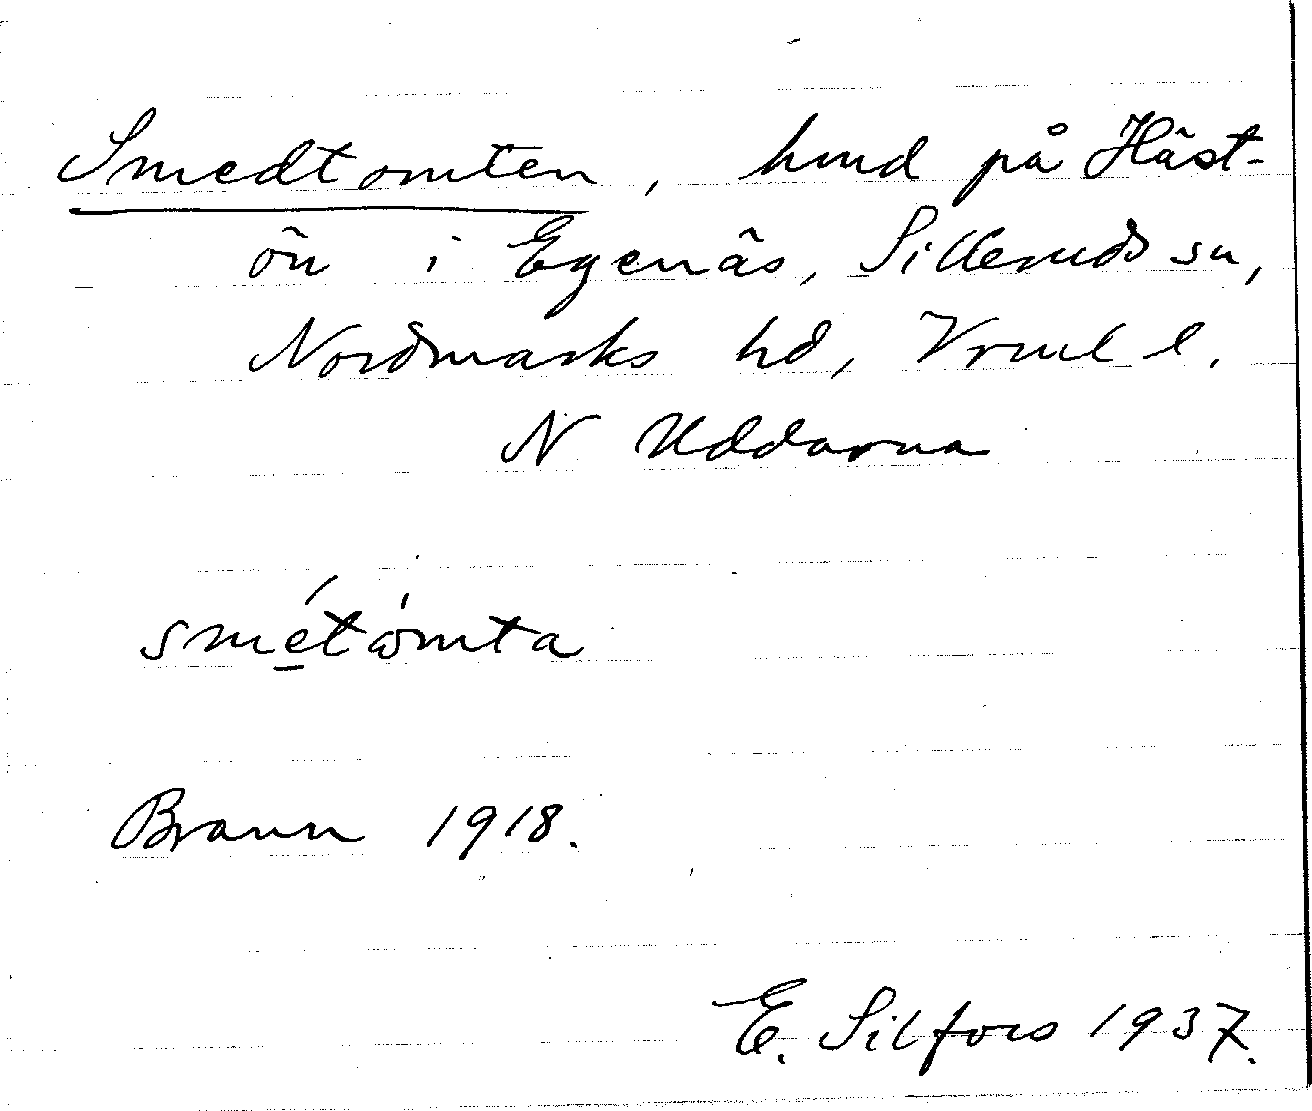 Smedtomten, hmd på Häst-
ön i Egenäs, Silleruds sn,
Nordmarks hd, Vrml l.
N Uddarna
smétòmta
Braun 1918.
E. Silfors 1937.